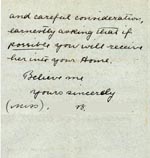 and careful consideration,
earnestly asking that if
possible you will receive
her into your Home.
Believe me
yours sincerely
(Miss). B.